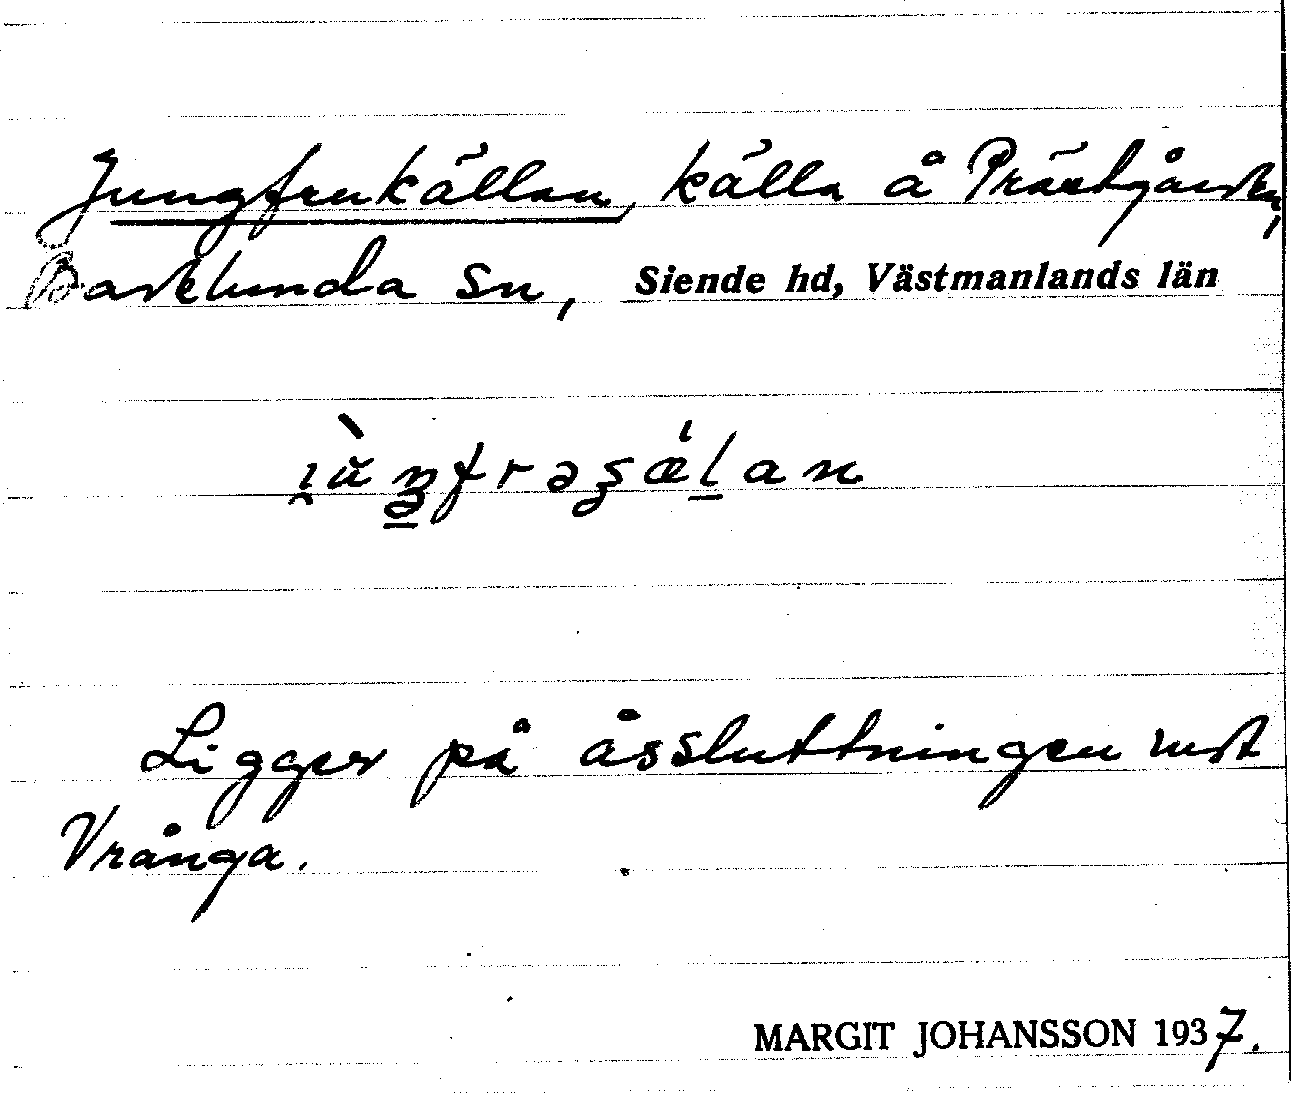 Jungfrukällan, källa å Prästgården,
Badelunda sn, Siende hd, Västmanlands län
Ligger på åssluttningen mot
Vrånga.
MARGIT JOHANSSON 1937.